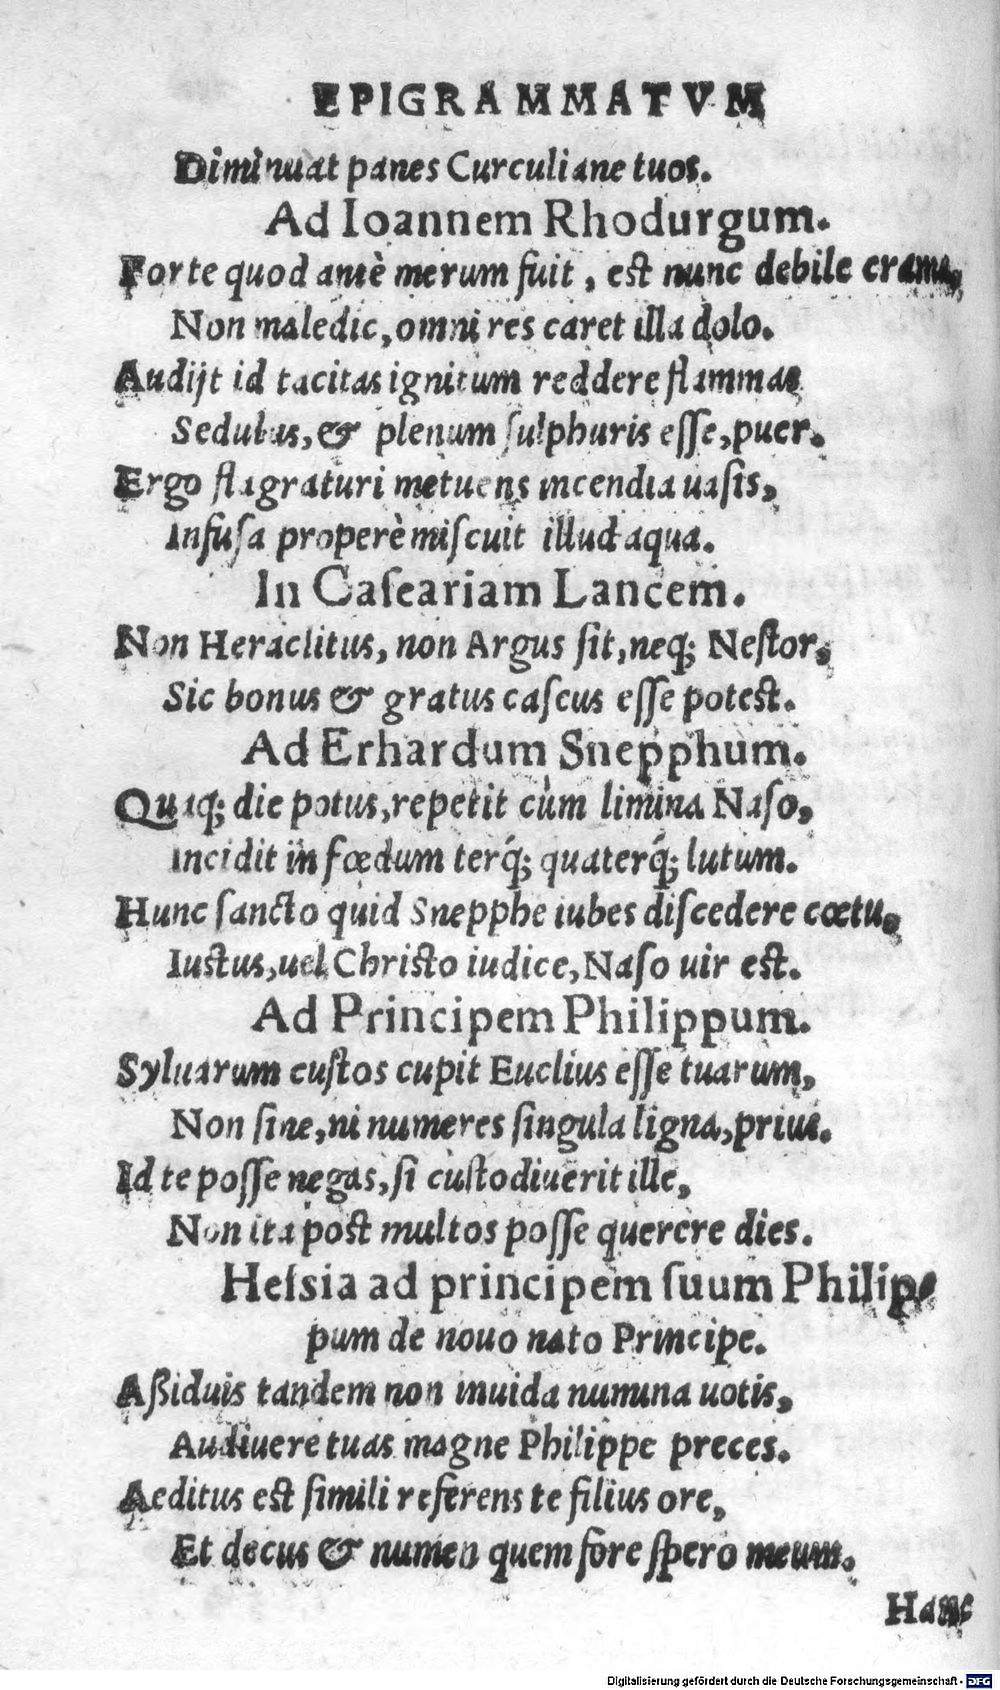 EPIGRAMMATVM
Diminuat panes Curculiane tuos.
Ad Ioannem Rhodurgum.
Forte quod antè merum fuit, est nunc debile crama,
Non maledic, omni res caret illa dolo.
Audijt id tacitas ignitum reddere flammas
Sedulus, & plenum sulphuris esse, puer.
Ergo flagraturi metuens incendia uasis,
Infusa properè miscuit illud aqua.
In Caseariam Lancem.
Non Heraclitus, non Argus sit, neq; Nestor,
Sic bonus & gratus caseus esse potest.
Ad Erhardum Snepphum.
Quaq; die potus, repetit cùm limina Naso,
Incidit in fœdum terq́; quaterq́; lutum.
Hunc sancto quid Snepphe iubes discedere cœtu,
Iustus, uel Christo iudice, Naso uir est.
Ad Principem Philippum.
Syluarum custos cupit Euclius esse tuarum,
Non sine, ni numeres singula ligna, prius.
Id te posse negas, si custodiuerit ille,
Non ita post multos posse querere dies.
Hessia ad principem suum Philip-
pum de nouo nato Principe.
Aßiduis tandem non inuida numina uotis,
Audiuere tuas magne Philippe preces.
Aeditus est simili referens te filius ore,
Et decus & numen quem fore spero meum.
Hanc
Digitalisierung gefördert durch die Deutsche Forschungsgemeinschaft - DFG